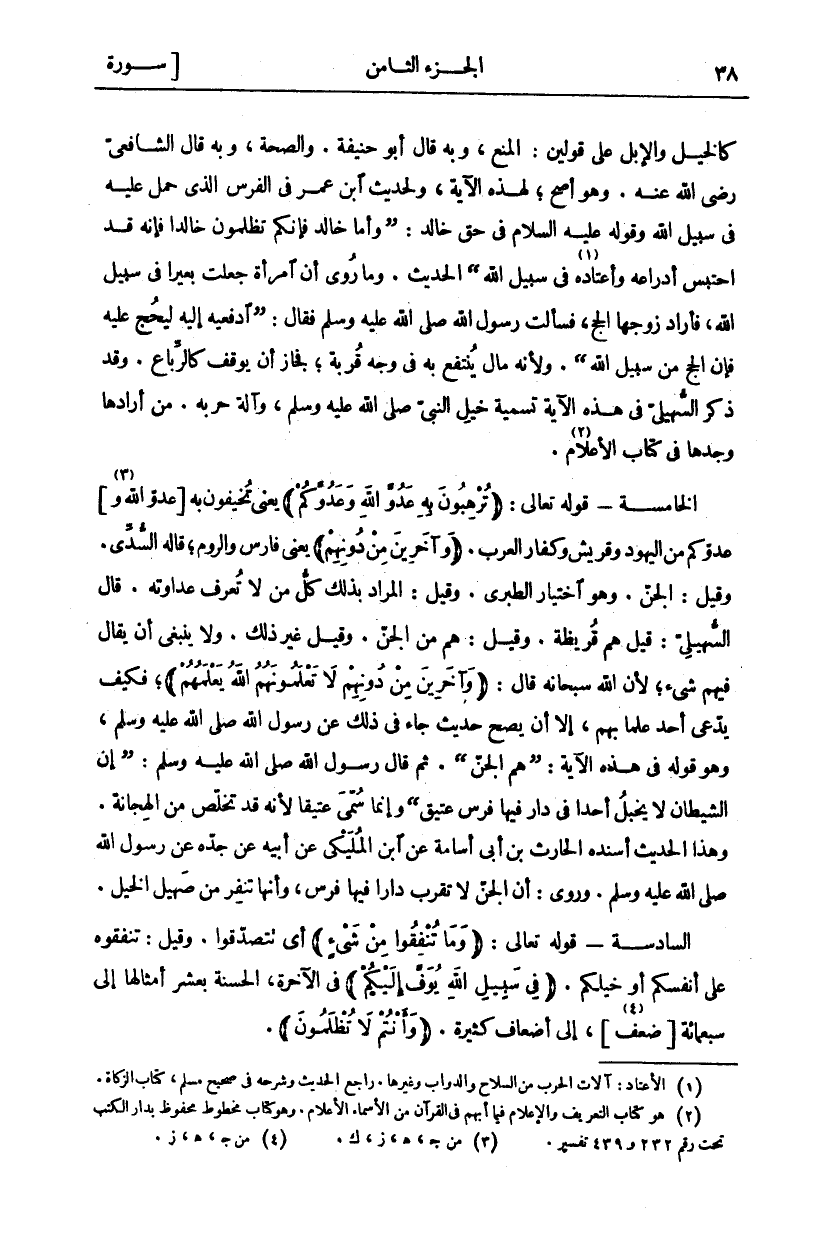 ٣٨ الجــزء الثــامن [ ســـورة
كالخيـل والإبل على قولين : المنع ، وبه قال أبو حنيفة . والصحة ، وبه قال الشـافعىّ
رضى الله عنـه . وهو أصح ؛ لهـذه الآية ، ولحديث ٱبن عمـر فى الفرس الذى حمل عليـه
فى سبيل الله وقوله عليـه السلام فى حق خالد : ”وأما خالد فإنكم تظلمون خالدا فإنه قـد
احتبس أدراعه وأعتاده (١) فى سبيل الله“ الحديث . وما رُوى أن ٱمرأة جعلت بعيرا فى سبيل
الله ، فأراد زوجها الحج ، فسألت رسول الله صلى الله عليه وسلم فقال : ”ٱدفعيه إليه ليحُج عليه
فإن الحج من سبيل الله“ . ولأنه مال يُنتفع به فى وجه قُربة ؛ فجاز أن يوقف كالرِّباع . وقد
ذكر السُّهيلىّ فى هـذه الآية تسمية خيل النبىّ صلى الله عليه وسلم ، وآلة حربه . من أرادها
وجدها فى كتاب الأعلام (٢) .
الخامســـة – قوله تعالى : ﴿ تُرْهِبُونَ بِهِ عَدُوَّ اللَّهِ وَعَدُوَّكُمْ ﴾ يعنى تُخيفون به [عدوّ الله و] (٣)
عدوّكم من اليهود وقريش وكفار العرب . ﴿ وَآخَرِينَ مِنْ دُونِهِمْ ﴾ يعنى فارس والروم ؛ قاله السُّدّى .
وقيل : الجنّ . وهو ٱختيار الطبرى . وقيل : المراد بذلك كلُّ من لا تُعرف عداوته . قال
السُّهيلىّ : قيل هم قُريظة . وقيـل : هم من الجنّ . وقيـل غير ذلك . ولا ينبغى أن يقال
فيهم شىء ؛ لأن الله سبحانه قال : ﴿ وَآخَرِينَ مِنْ دُونِهِمْ لَا تَعْلَمُونَهُمُ اللَّهُ يَعْلَمُهُمْ ﴾ ؛ فكيف
يدّعى أحد علما بهم ، إلا أن يصح حديث جاء فى ذلك عن رسول الله صلى الله عليه وسلم ،
وهو قوله فى هـذه الآية : ”هم الجنّ“ . ثم قال رسـول الله صلى الله عليـه وسلم : ”إن
الشيطان لا يخبلُ أحدا فى دار فيها فرس عتيق“ وإنما سُمِّىَ عتيقا لأنه قد تخلّص من الهجانة .
وهذا الحديث أسنده الحارث بن أبى أسامة عن ٱبن المُلَيْكى عن أبيه عن جدّه عن رسول الله
صلى الله عليه وسلم . وروى : أن الجنّ لا تقرب دارا فيها فرس ، وأنها تنفر من صَهيل الخيل .
السادســـة – قوله تعالى : ﴿ وَمَا تُنْفِقُوا مِنْ شَيْءٍ ﴾ أى تتصدّقوا . وقيل : تنفقوه
على أنفسكم أو خيلكم . ﴿ فِي سَبِيلِ اللَّهِ يُوَفَّ إِلَيْكُمْ ﴾ فى الآخرة ، الحسنة بعشر أمثالها إلى
سبعمائة [ ضعف ] (٤) ، إلى أضعاف كثيرة . ﴿ وَأَنْتُمْ لَا تُظْلَمُونَ ﴾ .
(١) الأعتاد : آلات الحرب من السلاح والدواب وغيرها . راجع الحديث وشرحه فى صحيح مسلم ، كتاب الزكاة .
(٢) هو كتاب التعريف والإعلام فيما أبهم فى القرآن من الأسماء الأعلام . وهو كتاب مخطوط محفوظ بدار الكتب
تحت رقم ٢٣٢ و ٤٣٩ تفسير . (٣) من جـ ، هـ ، ز ، ك . (٤) من جـ ، هـ ، ز .